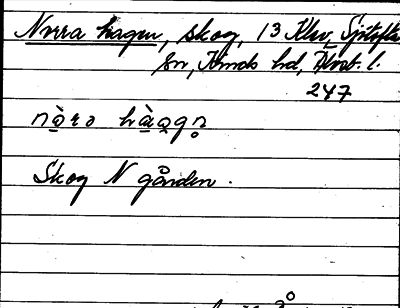 Norra hagen, skog, 13 Klev, Sjötofta
sn, Kinds hd, Älvsb. l.
247
nòrɔ hàagn̥
Skog N gården.